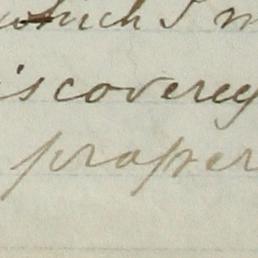 which I m
iscovery
proper